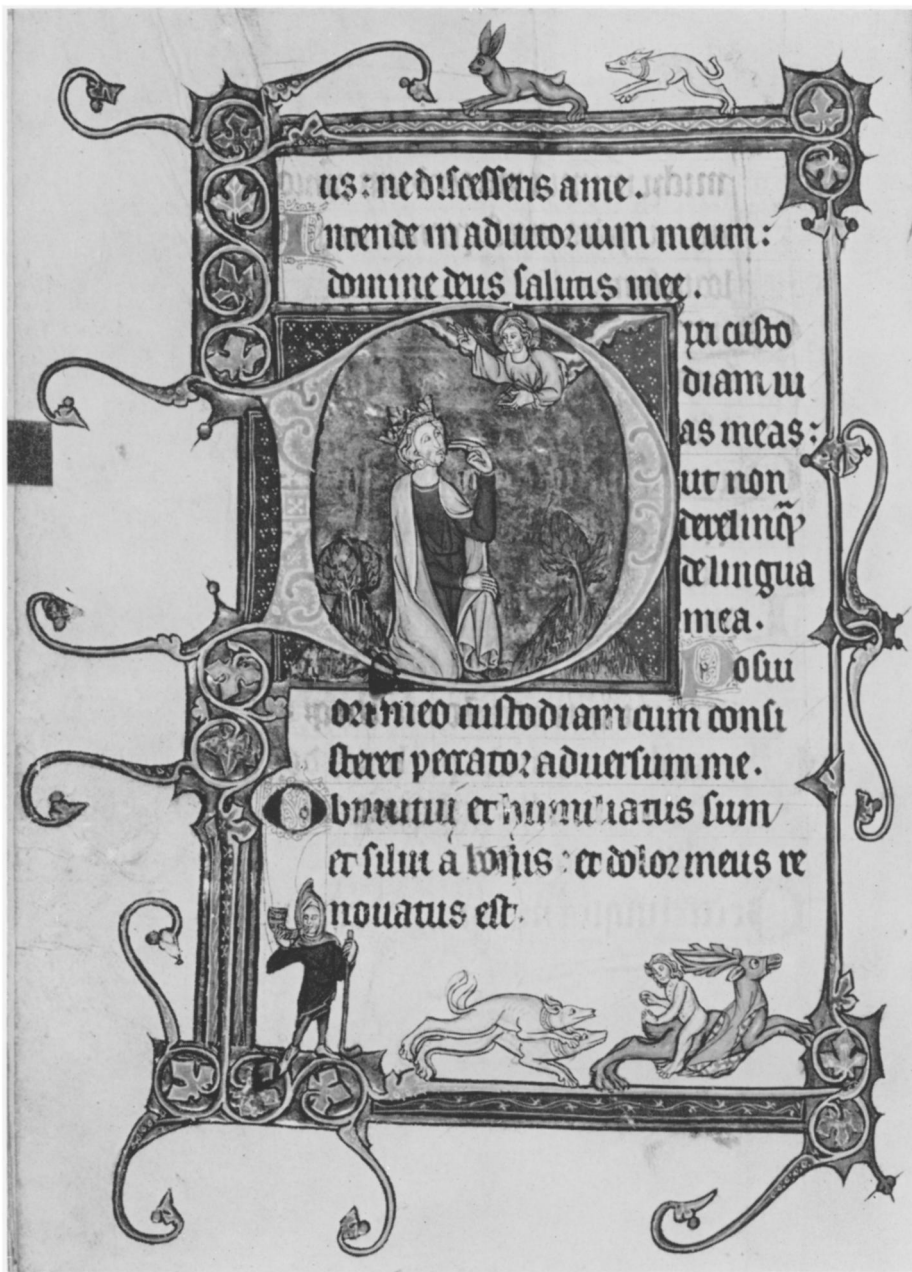 us : ne discesseris a me .
Intende in adiutorium meum :
domine deus salutis mee .
Dixi custo
diam ui
as meas :
ut non
derelinq̃
de lingua
mea .
Posui
ori meo custodiam cum consi
steret peccator aduersum me .
Obmutui et humiliatus sum
et silui a bonis : et dolor meus re
nouatus est .